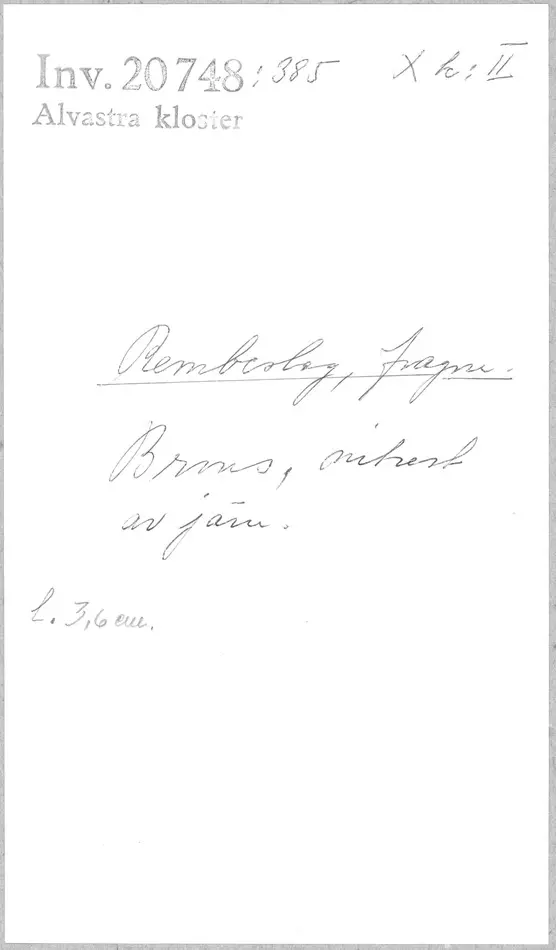 Inv. 20748:385 X k: II
Alvastra kloster
Rembeslag, fragm.
Brons, nitrest
av järn.
L. 3,6 cm.